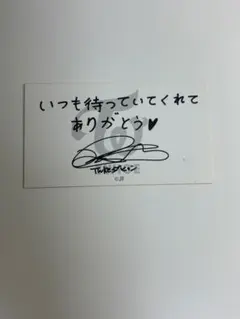 いつも待っていてくれて
ありがとう♥